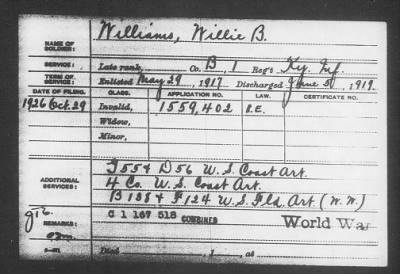 Williams, Willie B.
NAME OF SOLDIER:
SERVICE: Late rank, Co. B, 1 Reg't Ky. Inf.
TERM OF SERVICE: Enlisted May 29, 1917 Discharged June 5, 1919.
DATE OF FILING. CLASS. APPLICATION NO. LAW. CERTIFICATE NO.
1926 Oct. 29 Invalid, 1559,402
Widow,
Minor,
ADDITIONAL SERVICES: D 56 W. S. Coast Art.
4 Co. W. S. Coast Art.
124 W. S. Fld. Art. (W. W.)
REMARKS: C 1 167 518 COMBINED World War
Died , 1 , at